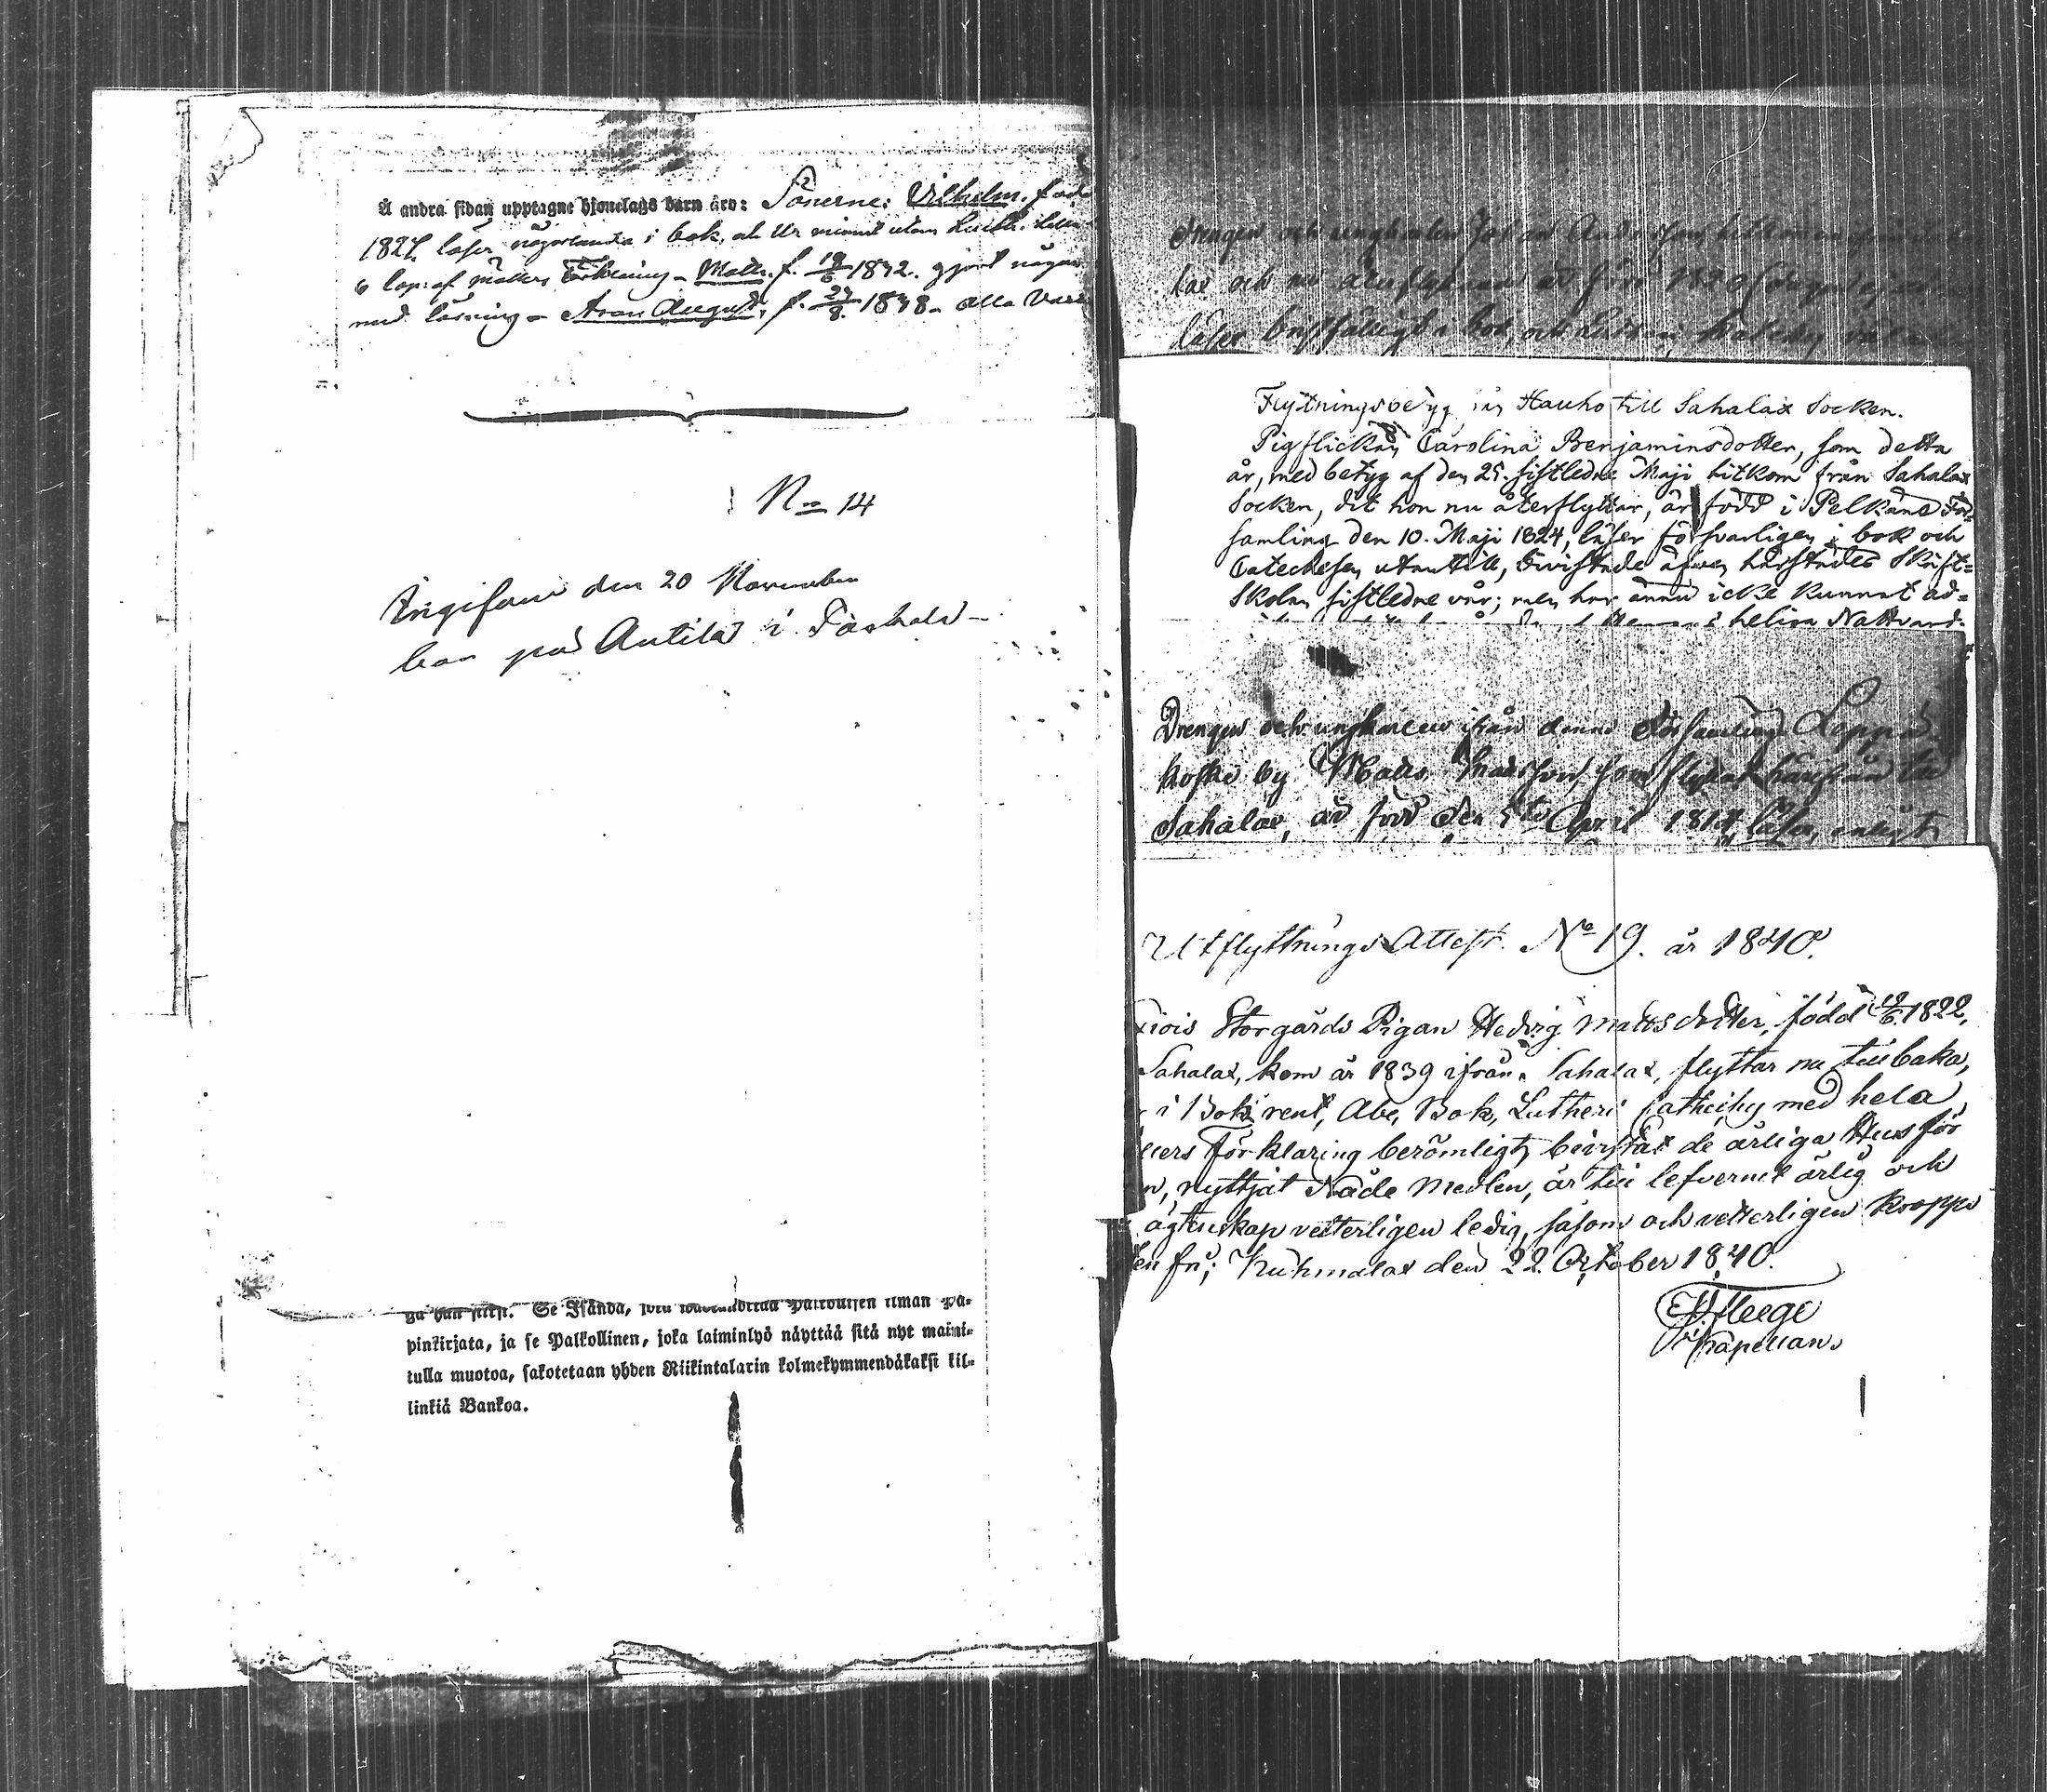 Å andra sidan upptagne hjonelags barn äro: Sönerne: Vilhelm, född
1827, läser någorlunda i bok, och ur minnet utom Luth.
6 cap: af mollers förklaring – Matts. f. 19/6 1832. gjort någon
med läsning – Aron August, f. 24/8. 1838 – alla
No 14
Ingifven den 20 November
på Antila i
Se Isändä, joka
pinkirjata, ja se Palkollinen, joka laiminlyö näyttää sitä nyt maini-
tulla muotoa, sakotetaan yhden Riikintalarin kolmekymmendäkaksi kil-
linkiä Bankoa.
Drengen och ungkarlen Johan Andersson
lax och nu återflyttar är född 1820
läser i bok, och
Flyttningsbetyg från Hauho till Sahalax Socken.
Pigflickan Carolina Benjaminsdotter, som detta
år, med betyg af den 25. sistledne Maji hitkom från Sahalax
Socken, dit hon nu återflyttar, är född i Pelkäne För-
samling den 10. Maji 1824, läser försvarligen i bok och
Catechesen utantill, bivistade äfven härstädes Skrift-
Skolan sistledne vår; men har ännu icke kunnat ad-
heliga Nattvard-
Drengen och ungkarlen ifrån denne Församling Leppä-
koski by Matts Mattsson, som flyttar härifrån till
Sahalax, är född den 5te April 1814, läser, enligt
Utflyttnings Attest. No 19. år 1840.
Storgårds Pigan Hedvig Mattsdotter, född 19/6. 1822,
Sahalax, kom år 1839 ifrån Sahalax, flyttar nu tillbaka,
i Bok rent, Abc, Bok, Lutheri Cathechy med hela
Förklaring berömligt, bevistat de årliga Husför
n, nyttjat Nåde Medlen, är till lefvernet ärlig och
ägtenskap vetterligen ledig, såsom och vetterligen koppo
ten fri; Kuhmalax den 22. October 1840.
Kapellan.